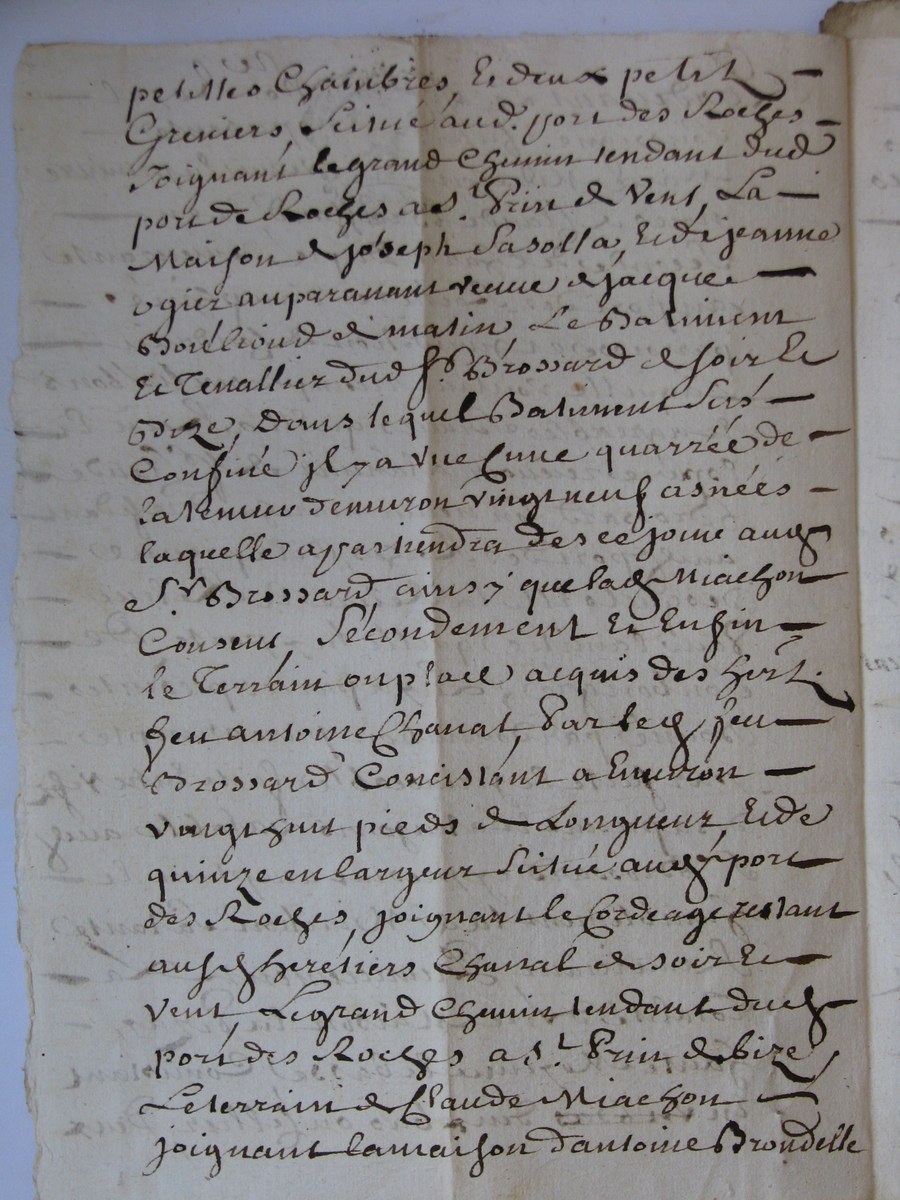 petittes Chambres, Et deux petit
Greniers, Scitué aud. port des Roches
Joignant le grand Chemin tendant dud
port de Roches a St. Prin de Vent, La
Maison de joseph Sasolla, Et de jeanne
ogier auparauant veuue de jacque
de matin, Le Batiment
Et Tenallier dud Sr. Brossard de soir Et
Bize, Dans lequel Batiment Sus
Confiné jl y a vne Cuue quarrée de
la teneur denuiron vingt neuf asnées
laquelle apartiendra des ce jour aud
Sr. Brossard, ainsy que lad Miachon
Consent, Sécondement Et Enfin
le Terrain ou place acquis des hért.
feu antoine Chanat, Par led feu
Brossard Concistant a Enuiron
vingt huit pieds de Longueur, Et de
quinze en largeur Scitué aud port
des Roches, joignant le Cordeage restant
ausd herétiers Chanal de soir Et
vent, Le grand Chemin tendant dud
port des Roches a St. Prin de bize,
Le terrain de Claude Miachon
joignant la maison d'antoine Brondelle